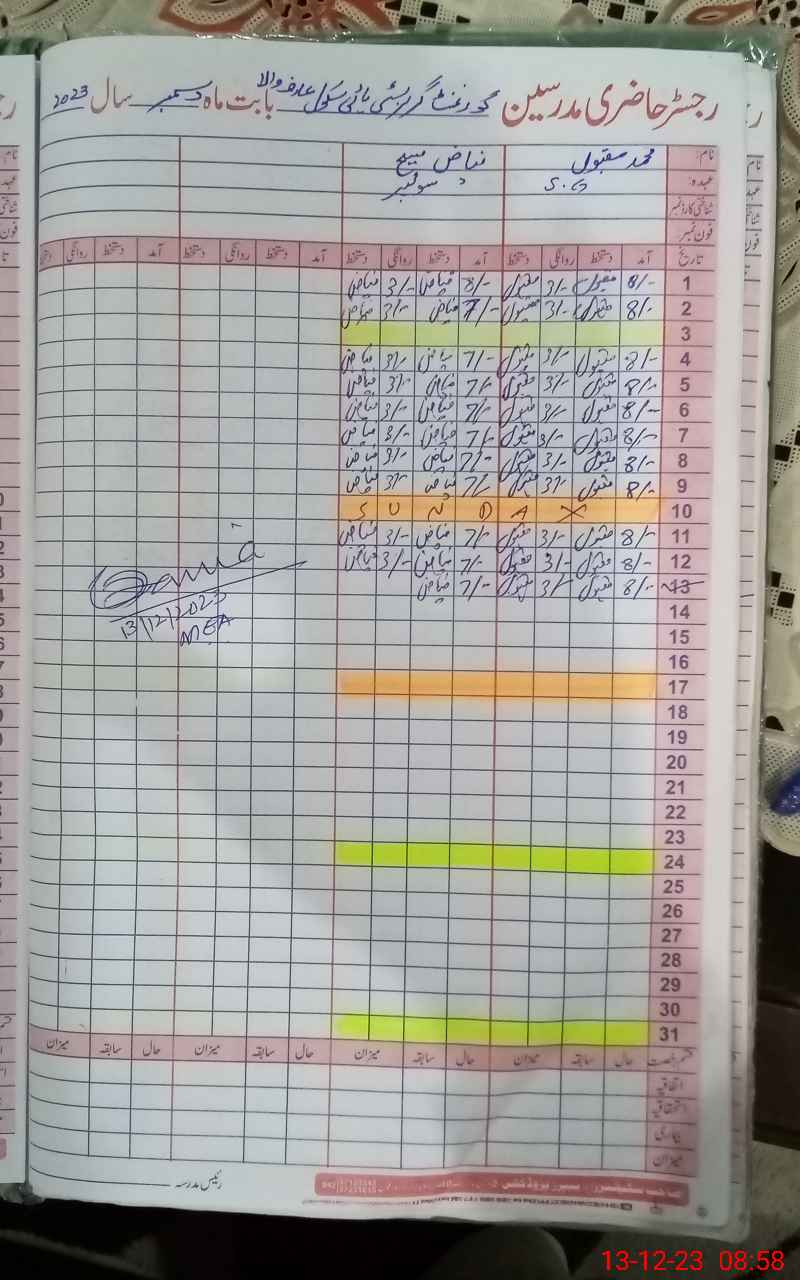 رجسٹر حاضری مدرسین گورنمنٹ گرلز سٹی ہائی سکول عارفوالا بابت ماہ دسمبر سال 2023
نام: محمد مقبول نیاض مسیح
عہدہ: S.G سوئیپر
شناختی کارڈ نمبر
فون نمبر
تاریخ آمد دستخط روانگی دستخط آمد دستخط روانگی دستخط آمد دستخط روانگی دستخط آمد دستخط روانگی دستخط
1 8/- مقبول 3/- مقبول 8/- نیاض 3/- نیاض
2 8/- مقبول 3/- مقبول 7/- نیاض 3/- نیاض
3
4 8/- مقبول 3/- مقبول 7/- نیاض 3/- نیاض
5 8/- مقبول 3/- مقبول 7/- نیاض 3/- نیاض
6 8/- مقبول 3/- مقبول 7/- نیاض 3/- نیاض
7 8/- مقبول 3/- مقبول 7/- نیاض 3/- نیاض
8 8/- مقبول 3/- مقبول 7/- نیاض 3/- نیاض
9 8/- مقبول 3/- مقبول 7/- نیاض 3/- نیاض
10 S U N D A Y
11 8/- مقبول 3/- مقبول 7/- نیاض 3/- نیاض
12 8/- مقبول 3/- مقبول 7/- نیاض 3/- نیاض
13 8/- مقبول 3/- مقبول 7/- نیاض
13/12/2023
MEA
14
15
16
17
18
19
20
21
22
23
24
25
26
27
28
29
30
31
قسم رخصت حال سابقہ میزان حال سابقہ میزان حال سابقہ میزان حال سابقہ میزان
اتفاقیہ
استحقاقیہ
بیماری
میزان
رئیس مدرسہ
13-12-23 08:58